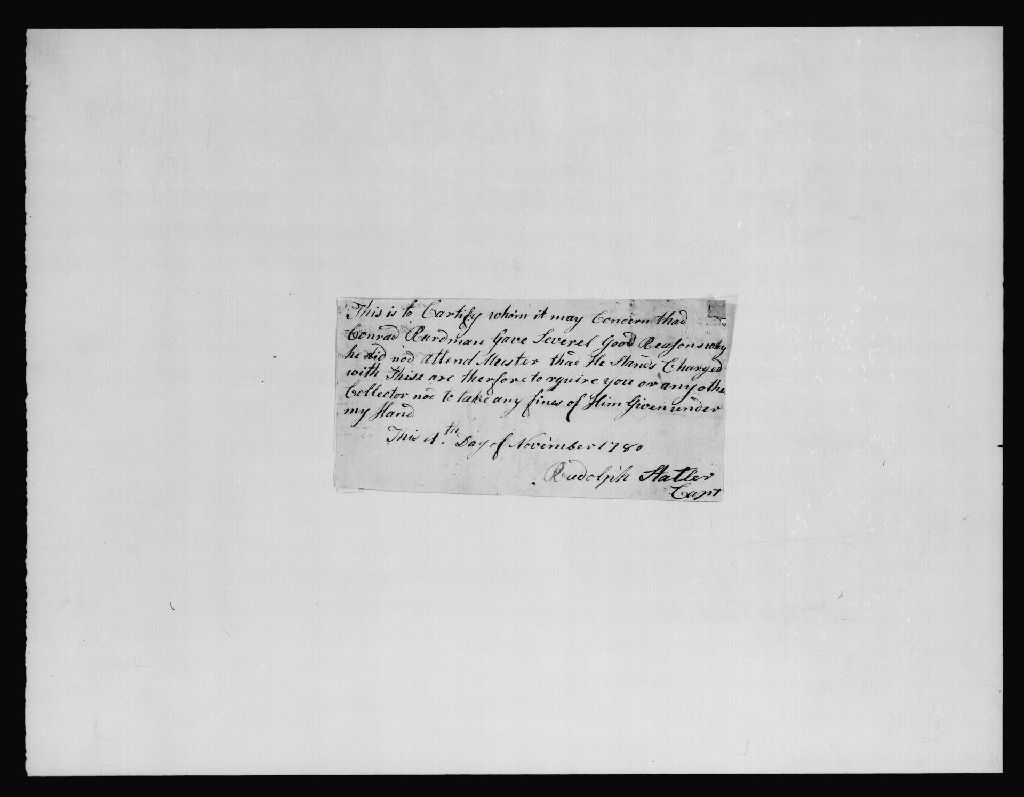 This is to Certify whom it may Concern thad
Conrad Rurdman Gave Severel Good Reasons why
he did nod attend Muster thad He Stands Charged
with Thise are therfore to rquire you or any othe
Collector not to take any fines of Him Given under
my Hand
This 4th Day of November 1780
Rudolph Statler
Capt